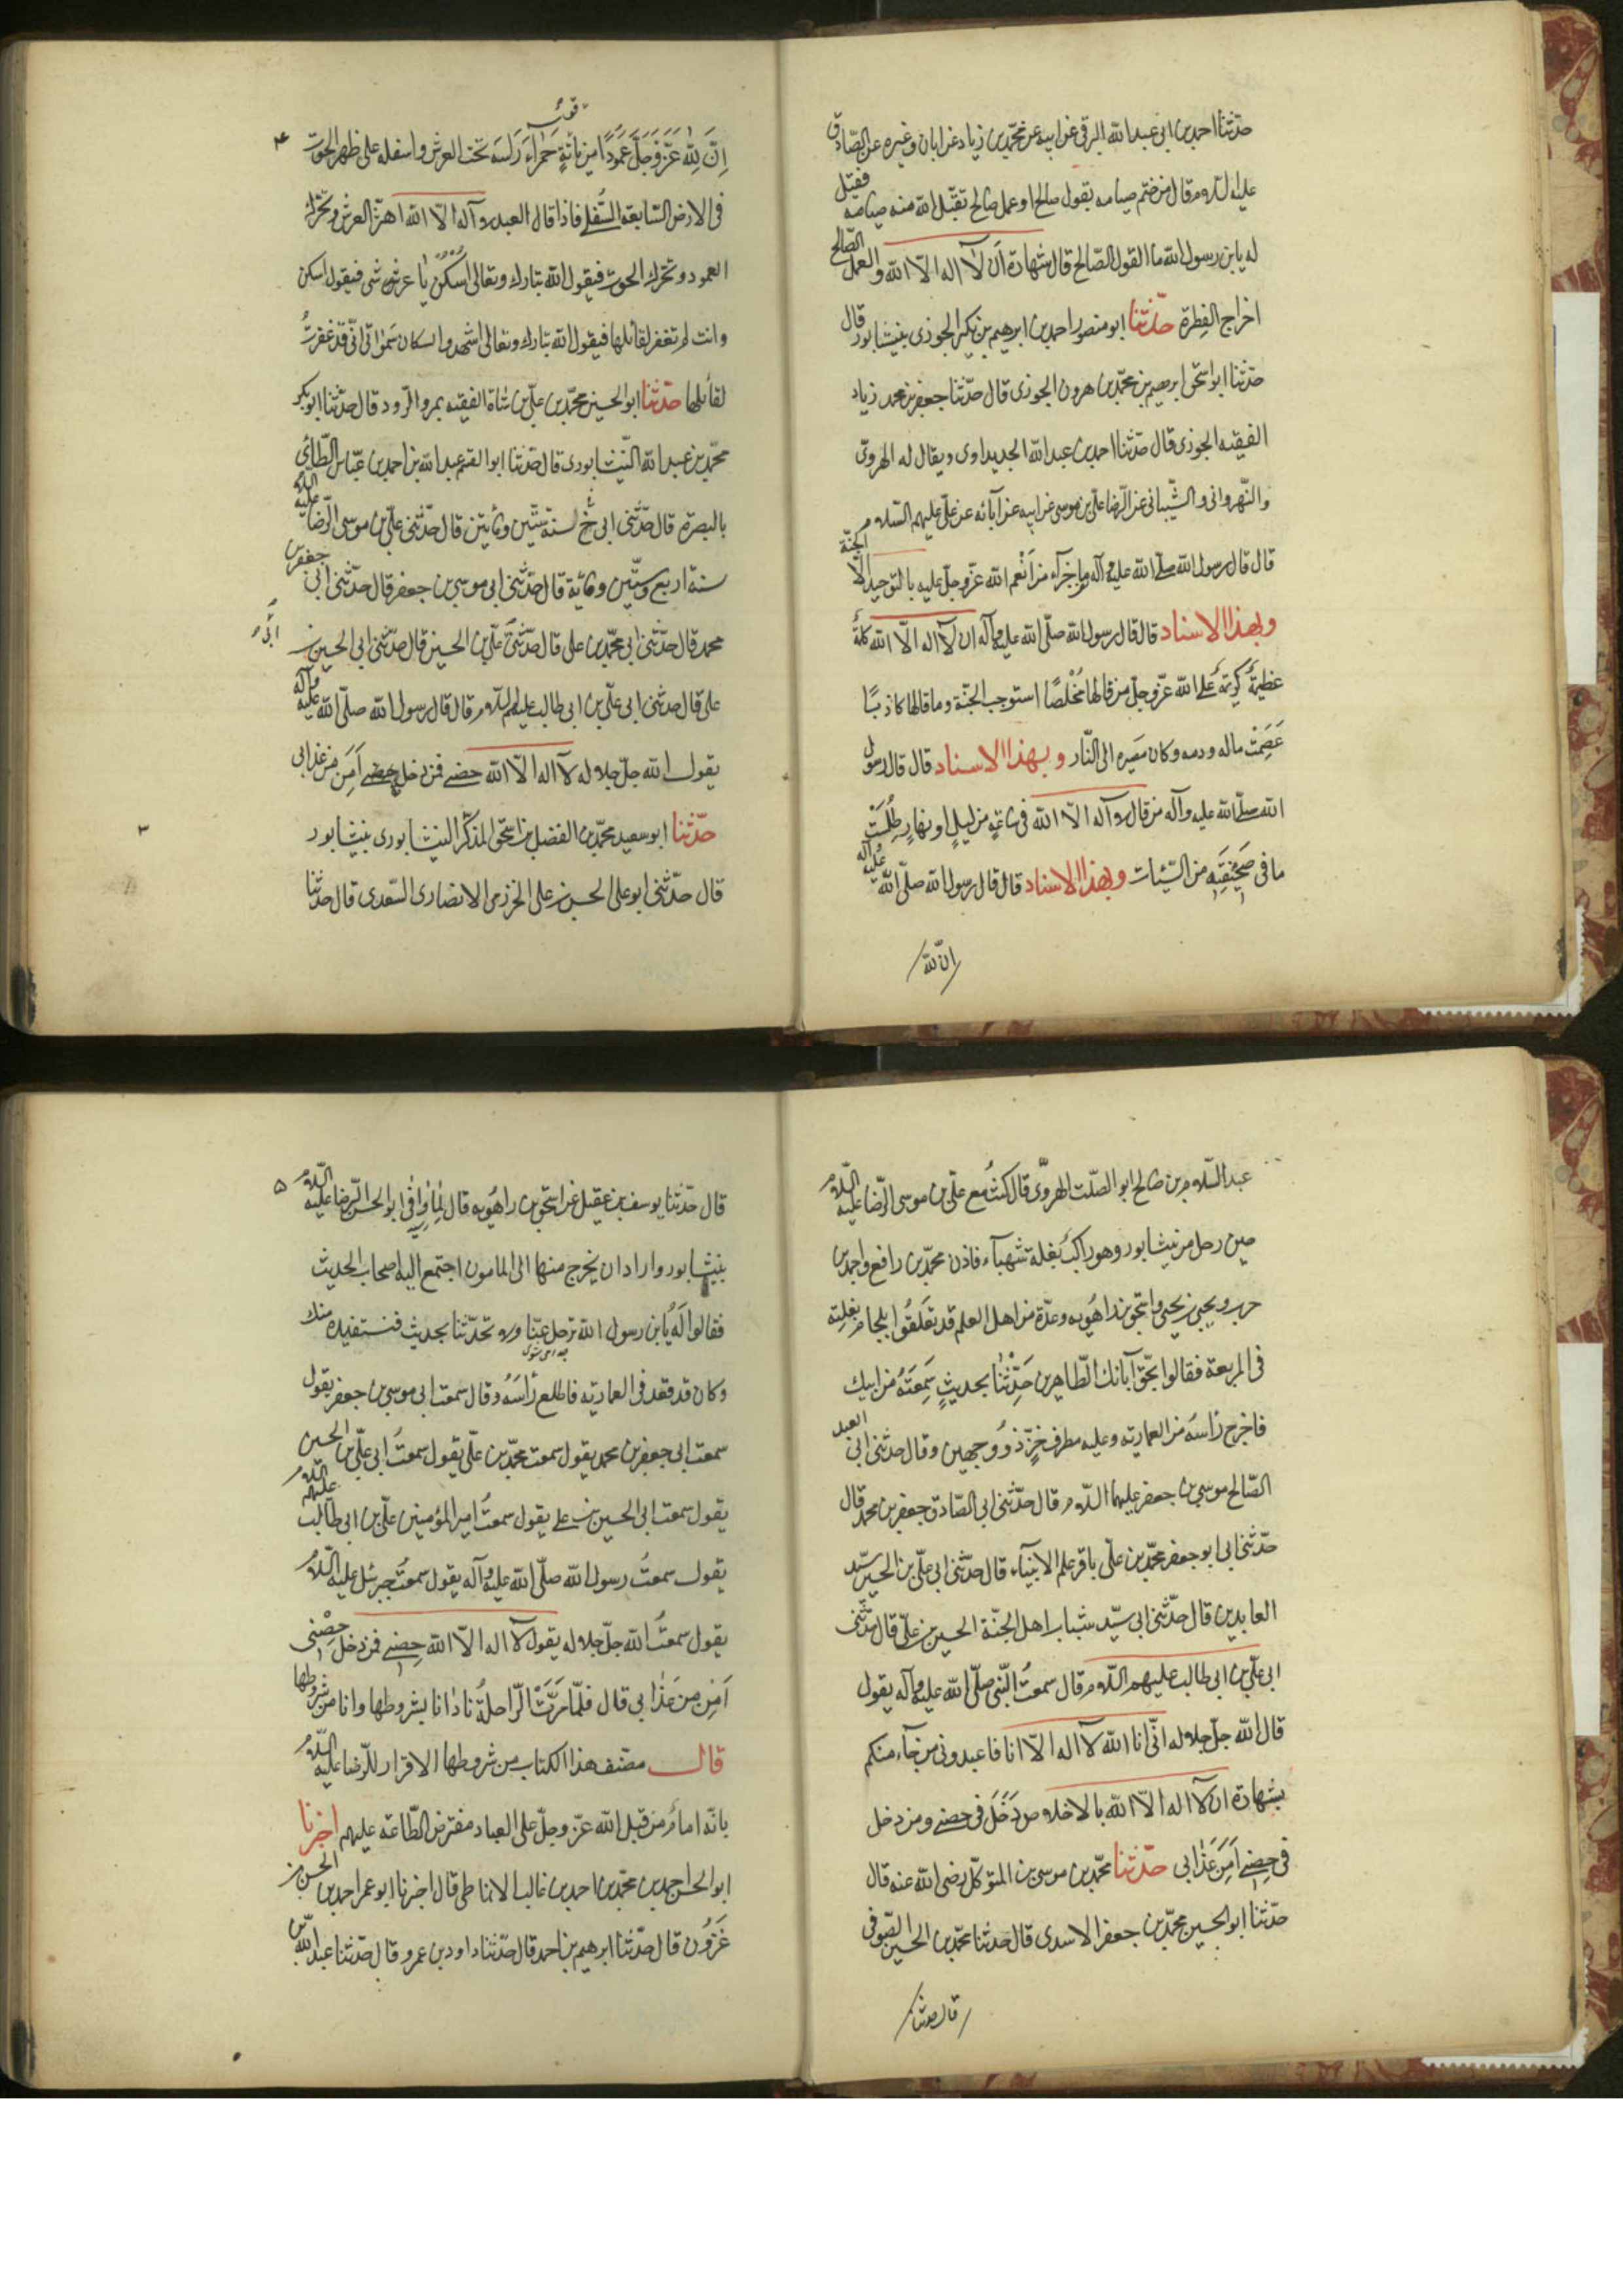 حدّثنا احمد بن ابی عبدالله البرقی عن ابیه عن محمّد بن زیاد عن ابان وغیره عن الصّادق
علیه السّلام قال من ختم صیامه بقول صالح او عمل صالح تقبّل الله منه صیامه فقیل
له یابن رسول الله ما القول الصّالح قال شهادة اَن لآ اله الّا الله والعمل الصّالح
اخراج الفِطرة حدّثنا ابو منصور احمد بن ابرهیم بن بکیر الجوزی بنیشابور قال
حدّثنا ابو اسحق ابرهیم بن محمّد بن هرون الجوزی قال حدّثنا جعفر بن محمد زیاد
الفقیه الجوزی قال حدّثنا احمد بن عبدالله الجدیداوی ویقال له الهرویّ
والنّهروانی والشّیبانی عن الرّضا علیّ بن موسی عن ابیه عن آبائه عن علیّ علیهم السّلام
قال قال رسول الله صلّی الله علیه وآله ما جزآء من اَنعم الله عزّوجلّ علیه بالتوحید الّا الجنّة
وبهذا الاسناد قال قال رسول الله صلّی الله علیه وآله ان لآ اله الّا الله کلمةٌ
عظیمةٌ کریمةٌ علی الله عزّوجلّ من قالها مُخْلصًا استوجب الجنّة وما قالها کاذبًا
عَصَمَتْ ماله ودمه وکان مصیره الی النّار وبهذا الاسناد قال قال رسول
الله صلّی الله علیه وآله من قال لآ اله الّا الله فی ساعَةٍ من لیلٍ او نهارٍ طُلِسَتْ
ما فی صَحیفَتِه من السّیّئات وبهذا الاسناد قال قال رسول الله صلّی الله علیه وآله
انّ لله
۴
اِنَّ لِلّٰه عَزَّ وَجَلَّ عَمُودًا مِن یاقوتةٍ حَمْراءَ رَاسَه تحت العرش واسفله علی ظهر الحوت
فی الارض السّابعة السُّفلی فاذا قال العبد لآ اله الّا الله اهتزّ العرش وتحرّک
العمود وتحرّک الحوت فیقول الله تبارک وتعالی اُسْکُنْ یا عرشی فیقول اسکن
وانت لم تغفر لقائلها فیقول الله تبارک وتعالی اشهدوا سکان سَمٰواتی انّی قد غفرتُ
لقائلها حدّثنا ابو الحسین محمّد بن علیّ بن شاة الفقیه بمرو الرّود قال حدّثنا ابو بکر
محمّد بن عبدالله النّیشابوری قال حدّثنا ابو القسم عبدالله بن احمد بن عبّاس الطّائی
بالبصرة قال حدّثنی ابی لسنة ستّین ومأتین قال حدّثنی علیّ بن موسی الرّضا علیه السّلام
سنة اربع وستّین ومائة قال حدّثنی ابی موسی بن جعفر قال حدّثنی ابی جعفر بن
محمد قال حدّثنی ابی محمّد بن علی قال حدّثنی علیّ بن الحسین قال حدّثنی ابی الحسین بن
علی قال حدّثنی ابی علیّ بن ابی طالب علیهم السّلام قال قال رسول الله صلّی الله علیه وآله
یقول الله جلّ جلاله لآ اله الّا الله حصنی فمن دخل حصنی اَمِنَ من عذابی
حدّثنا ابو سعید محمّد بن الفضل بن اسحق المذکّر النیشابوری بنیشابور
قال حدّثنی ابو علی الحسن بن علی الخزرمی الانصاری السّعدی قال حدّثنا
۳
عبد السّلام بن صالح ابو الصّلت الهرویّ قال کنتُ مع علیّ بن موسی الرّضا علیه السّلام
حین رحل من نیشابور وهو راکبٌ بغلة شهبآء فاذن محمّد بن رافع واحمد بن
حرب ویحیی بن یحیی واسحق بن راهُویه وعدّة من اهل العلم قد تعلّقُوا بلجام بغلته
فی المربعة فقالوا بحقّ آبائک الطّاهرین حَدِّثْنا بحدیثٍ سَمِعتَهُ من ابیک
فاخرج رأسَه من العماریّه وعلیه مطرف خزّ ذو وجهین وقال حدّثنی ابی العبد
الصّالح موسی بن جعفر علیهما السّلام قال حدّثنی ابی الصّادق جعفر بن محمد قال
حدّثنی ابی ابو جعفر محمّد بن علیّ باقر علم الانبیآء قال حدّثنی ابی علیّ بن الحسین سیّد
العابدین قال حدّثنی ابی سیّد شباب اهل الجنّة الحسین بن علیّ قال حدّثنی
ابی علیّ بن ابی طالب علیهم السّلام قال سمعتُ النّبی صلّی الله علیه وآله یقول
قال الله جلّ جلاله انّی انا الله لآ اله الّا انا فاعبدونی من جآء منکم
بشهادة ان لآ اله الّا الله بالاخلاص دَخَلَ فی حصنی ومن دخل
فی حِصنی اَمِنَ عَذابی حدّثنا محمّد بن موسی بن المتوکّل رضی الله عنه قال
حدّثنا ابو الحسین محمّد بن جعفر الاسدی قال حدثنا محمّد بن الحسین الصّوفی
قال حدثنا
۵
قال حدّثنا یوسف بن عقیل عن اسحق بن راهُویه قال لمّا وافی ابو الحسن الرّضا علیه السّلام
بنیشابور واراد ان یخرج منها الی المامون اجتمع الیه اصحاب الحدیث
فقالوا لَه یابن رسول الله ترحل عنّا ولا تحدّثنا بحدیث فنستفیده منک
وکان قد قعد فی العماریّه فاطلع رأسَهُ وقال سمعت ابی موسی بن جعفر یقول
سمعت ابی جعفر بن محمد یقول سمعت محمّد بن علیّ یقول سمعتُ ابی علیّ بن الحسین
یقول سمعت ابی الحسین بن علی یقول سمعتُ امیر المؤمنین علیّ بن ابی طالب علیهم السّلام
یقول سمعتُ رسول الله صلّی الله علیه وآله یقول سمعتُ جبرئیل علیه السّلام
یقول سمعتُ الله جلّ جلاله یقول لآ اله الّا الله حِصنی فمن دخل حِصْنی
اَمِنَ مِن عَذابی قال فلمّا مَرَّتْ الرّاحلةُ نادانا بشروطها وانا من شروطها
قال مصنف هذا الکتاب من شروطها الاقرار للرّضا علیه السّلام
بانّه امامٌ من قبل الله عزّ وجلّ علی العباد مفترض الطّاعة علیهم اخبرنا
ابو الحسن احمد بن محمّد بن احمد بن غالب الانماطی قال اخبرنا ابو عمر احمد بن الحسن بن
غَزْوَن قال حدّثنا ابرهیم بن احمد قال حدّثنا داود بن عمرو قال حدّثنا عبدالله بن